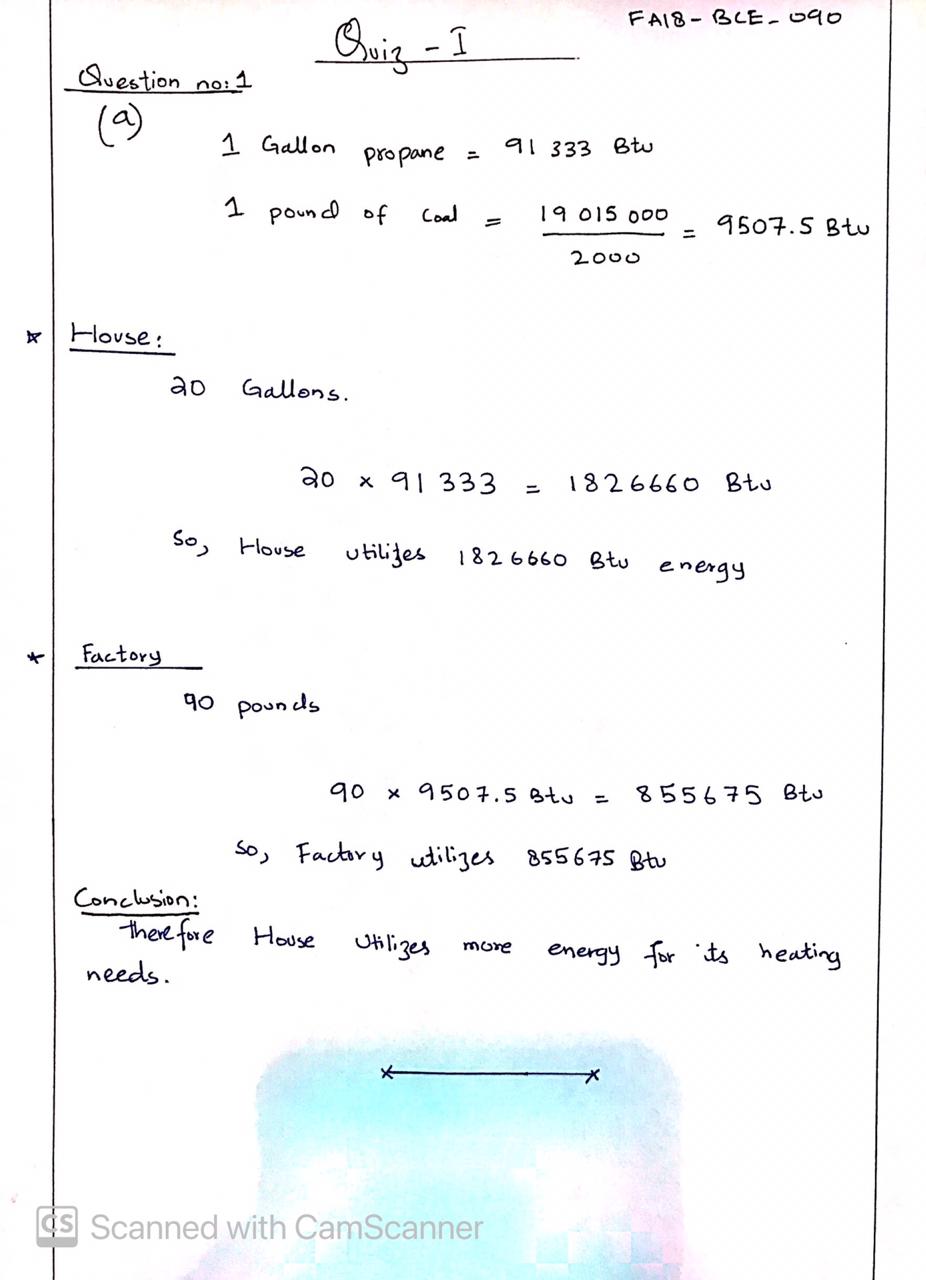 FA18-BCE-090
Quiz - I
Question no: 1
(a)
1 Gallon propane = 91 333 Btu
1 pound of coal = 19 015 000 / 2000 = 9507.5 Btu
* House:
20 Gallons.
20 × 91 333 = 1826660 Btu
So, House utilizes 1826660 Btu energy
* Factory
90 pounds
90 × 9507.5 Btu = 855675 Btu
So, Factory utilizes 855675 Btu
Conclusion:
Therefore House Utilizes more energy for its heating
needs.
CS Scanned with CamScanner